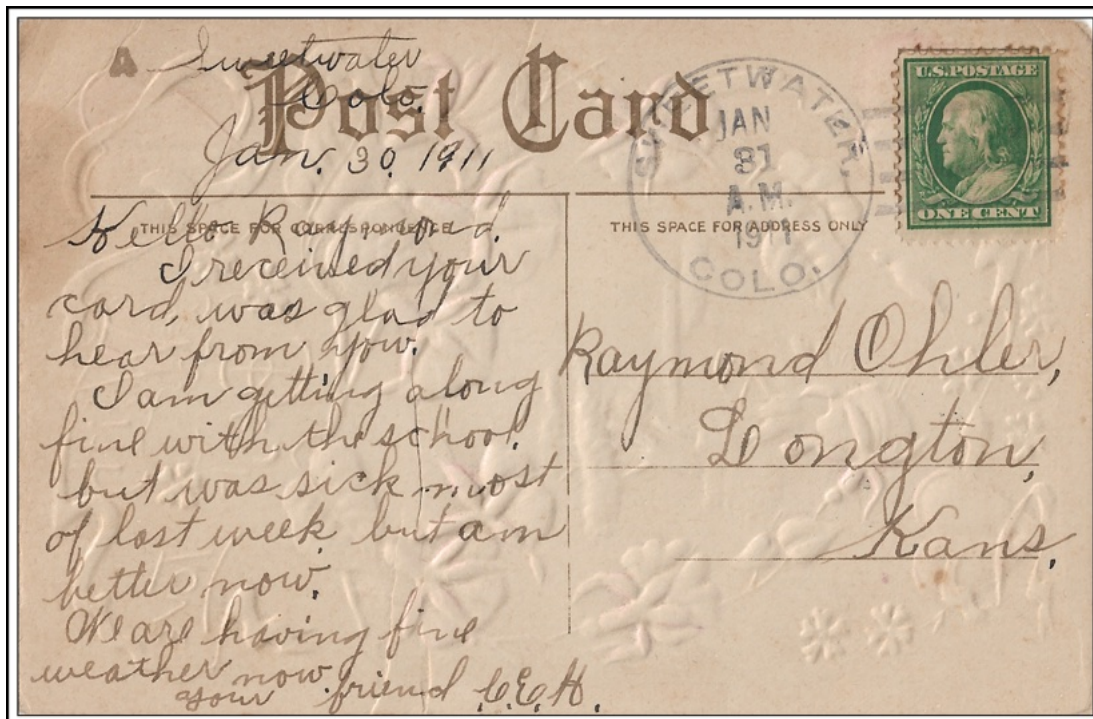 A Sweetwater
Colo.
Post Card
Jan. 30, 1911
SWEETWATER
JAN
31
A.M.
1911
COLO.
U.S.POSTAGE
ONE CENT
THIS SPACE FOR CORRESPONDENCE
THIS SPACE FOR ADDRESS ONLY
Hello Raymond.
I received your
card, was glad to
hear from you.
I am getting along
fine with the school.
but was sick most
of last week but am
better now.
We are having fine
weather now
your friend C.E.H.
Raymond Ohler,
Longton,
Kans.